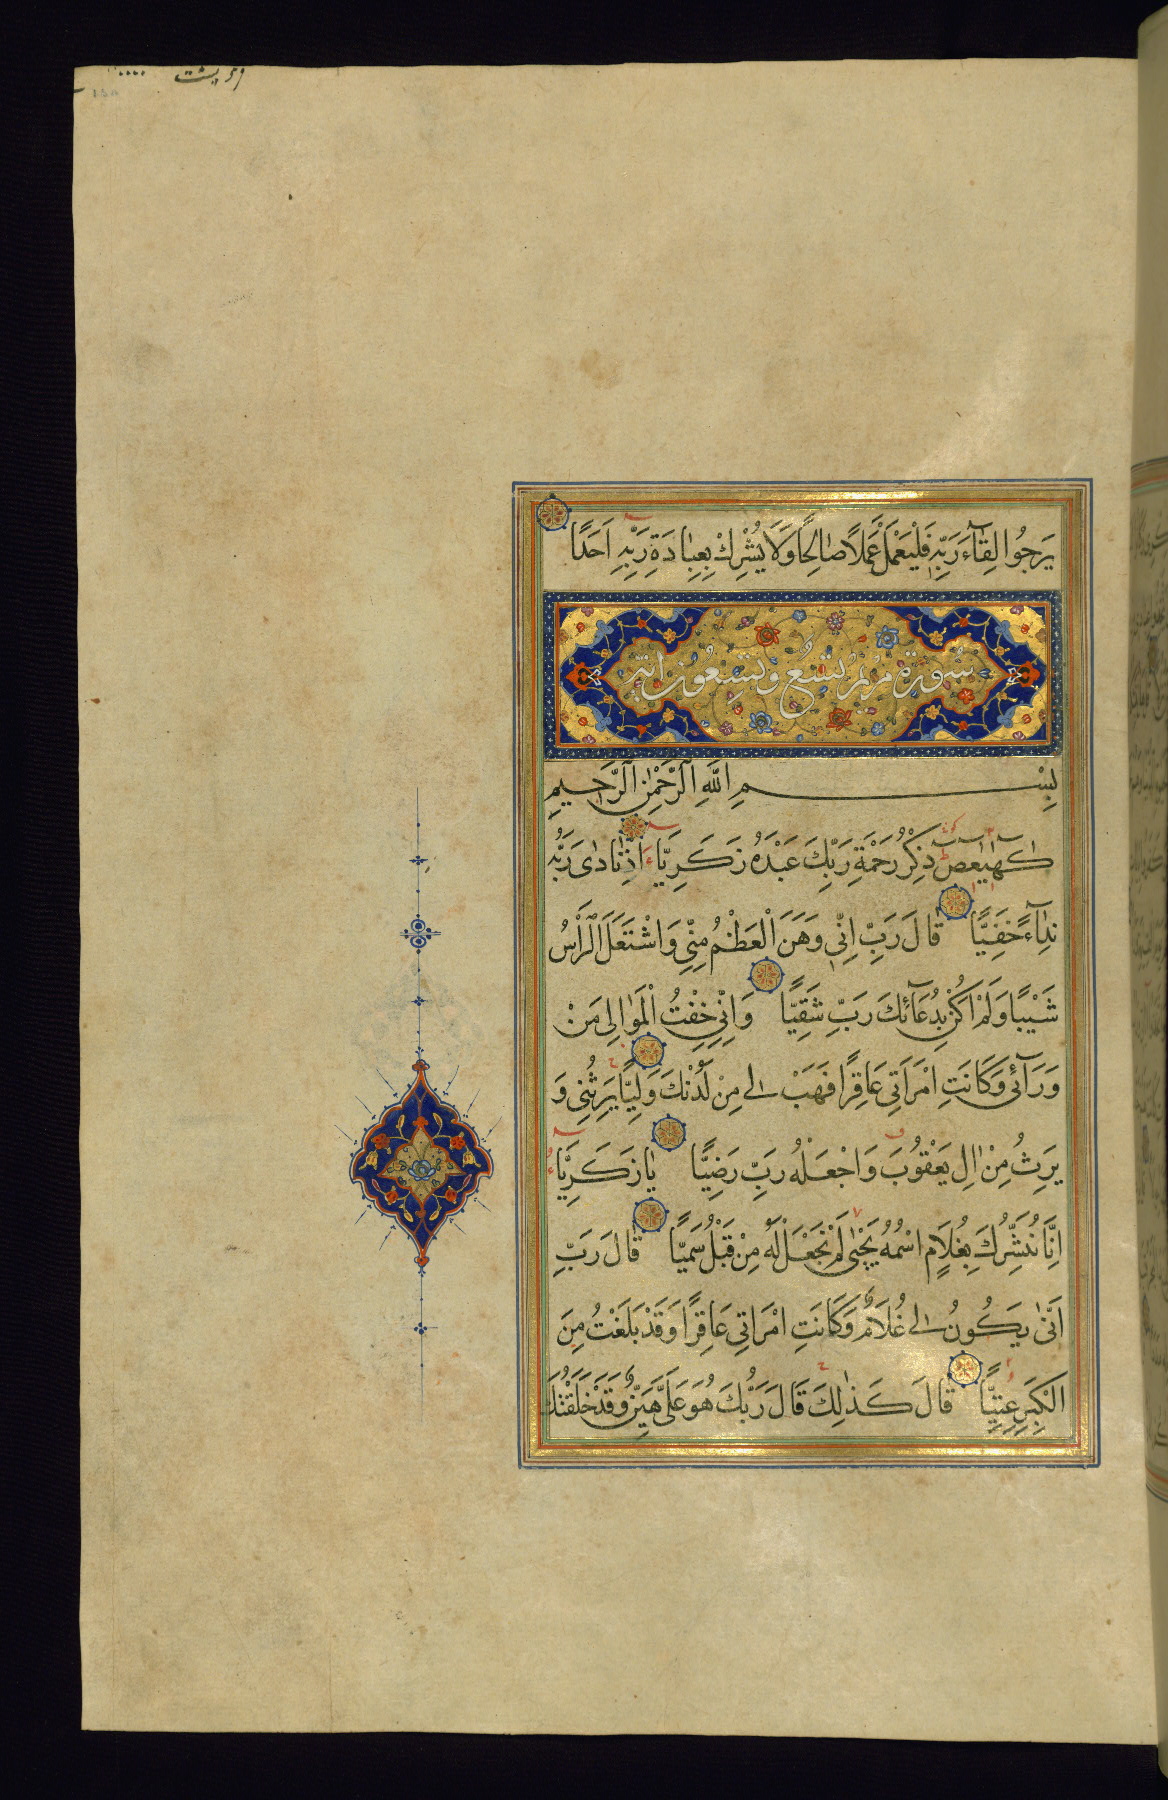 يَرْجُوا لِقَآءَ رَبِّهِ فَلْيَعْمَلْ عَمَلًا صَالِحًا وَلَا يُشْرِكْ بِعِبَادَةِ رَبِّهِ اَحَدًا
سورة مريم تسع وتسعون اية
بِسْمِ اللهِ الرَّحْمٰنِ الرَّحِيمِ
كٓهٰيٰعٓصٓ ذِكْرُ رَحْمَةِ رَبِّكَ عَبْدَهُ زَكَرِيَّاءَ اِذْ نَادٰى رَبَّهُ
نِدَآءً خَفِيًّا قَالَ رَبِّ اِنِّي وَهَنَ الْعَظْمُ مِنِّي وَاشْتَعَلَ الرَّاْسُ
شَيْبًا وَلَمْ اَكُنْ بِدُعَآئِكَ رَبِّ شَقِيًّا وَاِنِّي خِفْتُ الْمَوَالِيَ مِنْ
وَرَآئِى وَكَانَتِ امْرَاَتِي عَاقِرًا فَهَبْ لِي مِنْ لَدُنْكَ وَلِيًّا يَرِثُنِي وَ
يَرِثُ مِنْ اٰلِ يَعْقُوبَ وَاجْعَلْهُ رَبِّ رَضِيًّا يَا زَكَرِيَّاءُ
اِنَّا نُبَشِّرُكَ بِغُلَامٍ اسْمُهُ يَحْيٰى لَمْ نَجْعَلْ لَهُ مِنْ قَبْلُ سَمِيًّا قَالَ رَبِّ
اَنّٰى يَكُونُ لِي غُلَامٌ وَكَانَتِ امْرَاَتِي عَاقِرًا وَقَدْ بَلَغْتُ مِنَ
الْكِبَرِ عِتِيًّا قَالَ كَذٰلِكَ قَالَ رَبُّكَ هُوَ عَلَيَّ هَيِّنٌ وَقَدْ خَلَقْتُكَ